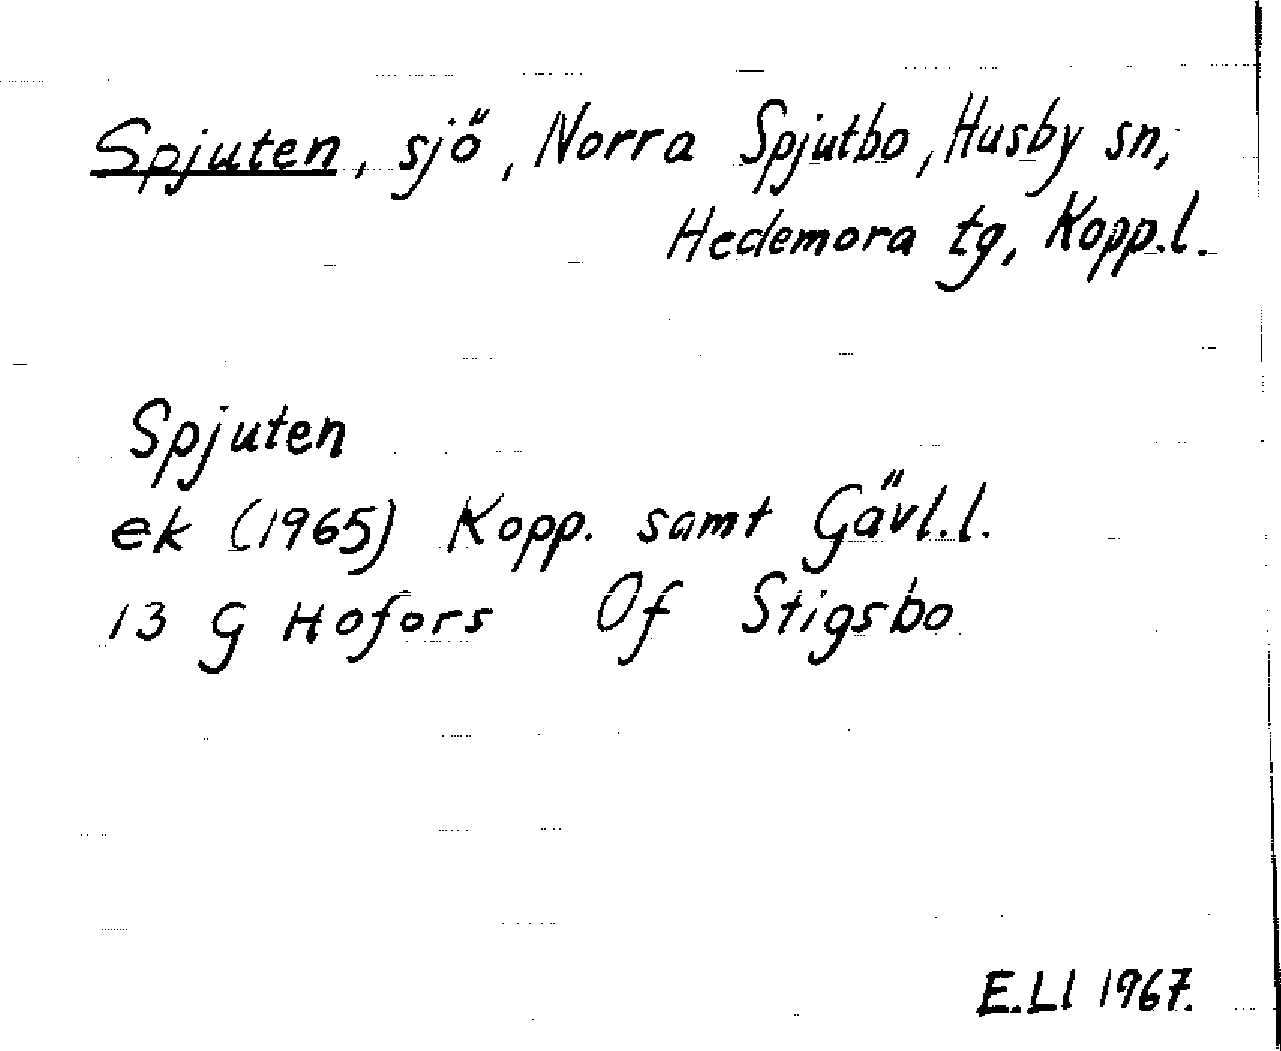 Spjuten, sjö, Norra Spjutbo, Husby sn,
Hedemora tg, Kopp.l.
Spjuten
ek (1965) Kopp. samt Gävl.l.
13 G Hofors Of Stigsbo
E.Ll 1967.